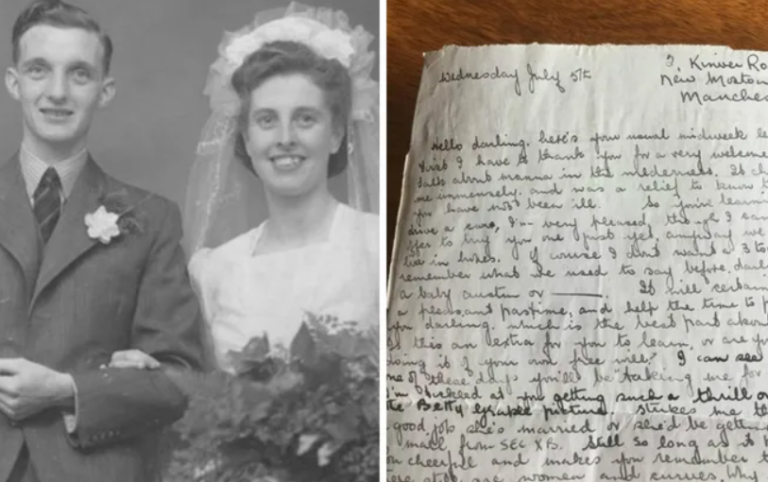 Wednesday July 5th
7, Kinver Ro
New Moston
Manches
Hello darling. here's your usual midweek le
First I have to thank you for a very welcome
talk about manna in the wilderness. It ch
me immensely. and was a relief to know t
you have not been ill. So you're learni
drive a euro, I'm very pleased, though I can
to buy you one just yet, anyway we
live in hopes. Of course I don't want a 3 to
remember what we used to say before, darli
a baby austin or ———. It will certain
a pleasant pastime, and help the time to p
you darling. which is the best part about
this an extra for you to learn, or are yo
doing it of your own free will? I can see
one of these days you'll be taking me for
I'm tickled at you getting such a thrill o
the Betty Grable picture. Strikes me th
good job she's married or she'd be gettin
mail from SEC XB. Still so long as it k
you cheerful and makes you remember t
there still are women and curves, why